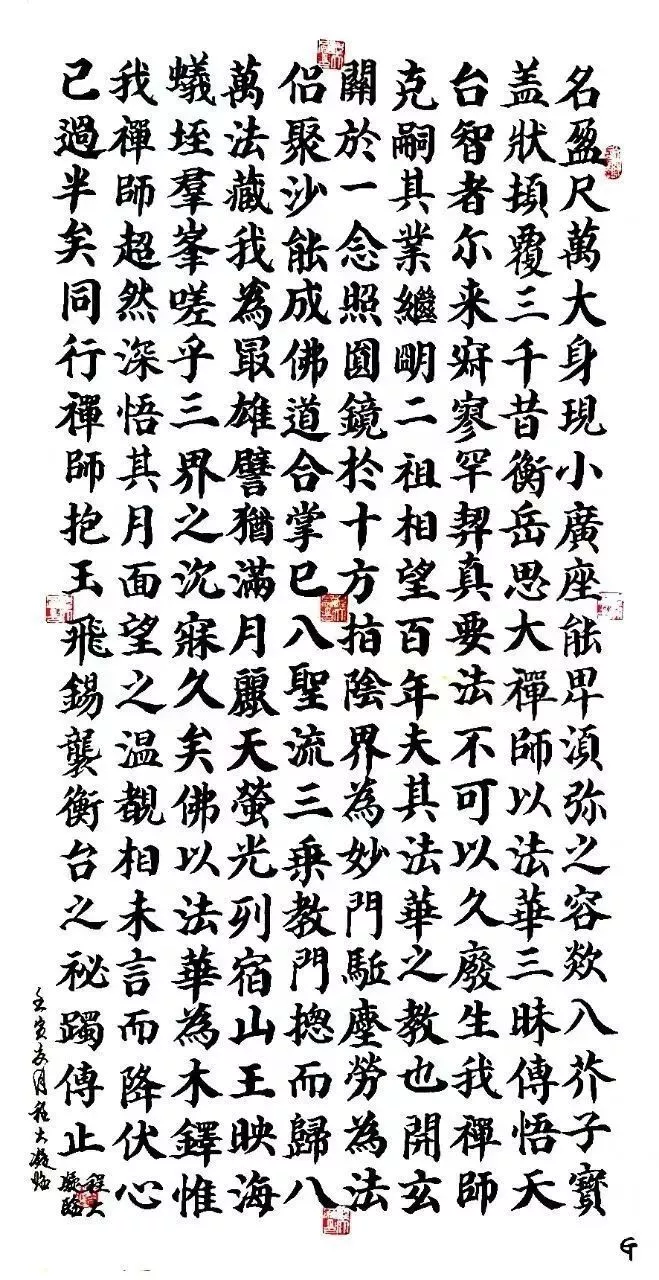 名盈尺萬大身現小廣座能卑湏弥之容欻入芥子寳
盖狀頓覆三千昔衡岳思大禪師以法華三昧傳悟天
台智者尔来寂寥罕契真要法不可以久廢生我禪師
克嗣其業繼明二祖相望百年夫其法華之教也開玄
關於一念照圓鏡於十方指陰界為妙門駈塵勞為法
侣聚沙能成佛道合掌已入聖流三乗教門揔而歸八
萬法藏我為㝡雄譬猶滿月麗天螢光列宿山王映海
蟻垤羣峯嗟乎三界之沉寐久矣佛以法華為木鐸惟
我禪師超然深悟其月面望之温覩相未言而降伏心
已過半矣同行禪師抱玉飛錫襲衡台之祕躅傳止
壬寅
G